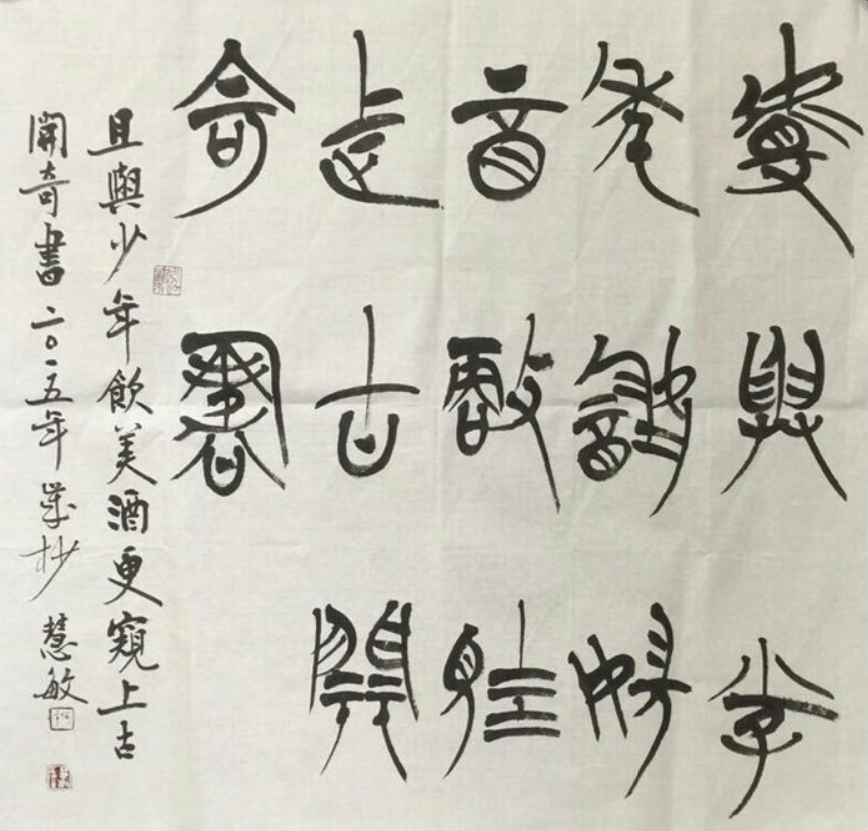 且與少
年飲美
酒更窺
上古開
奇書
且與少年飲美酒更窺上古
開奇書二〇一五年歲杪慧敏